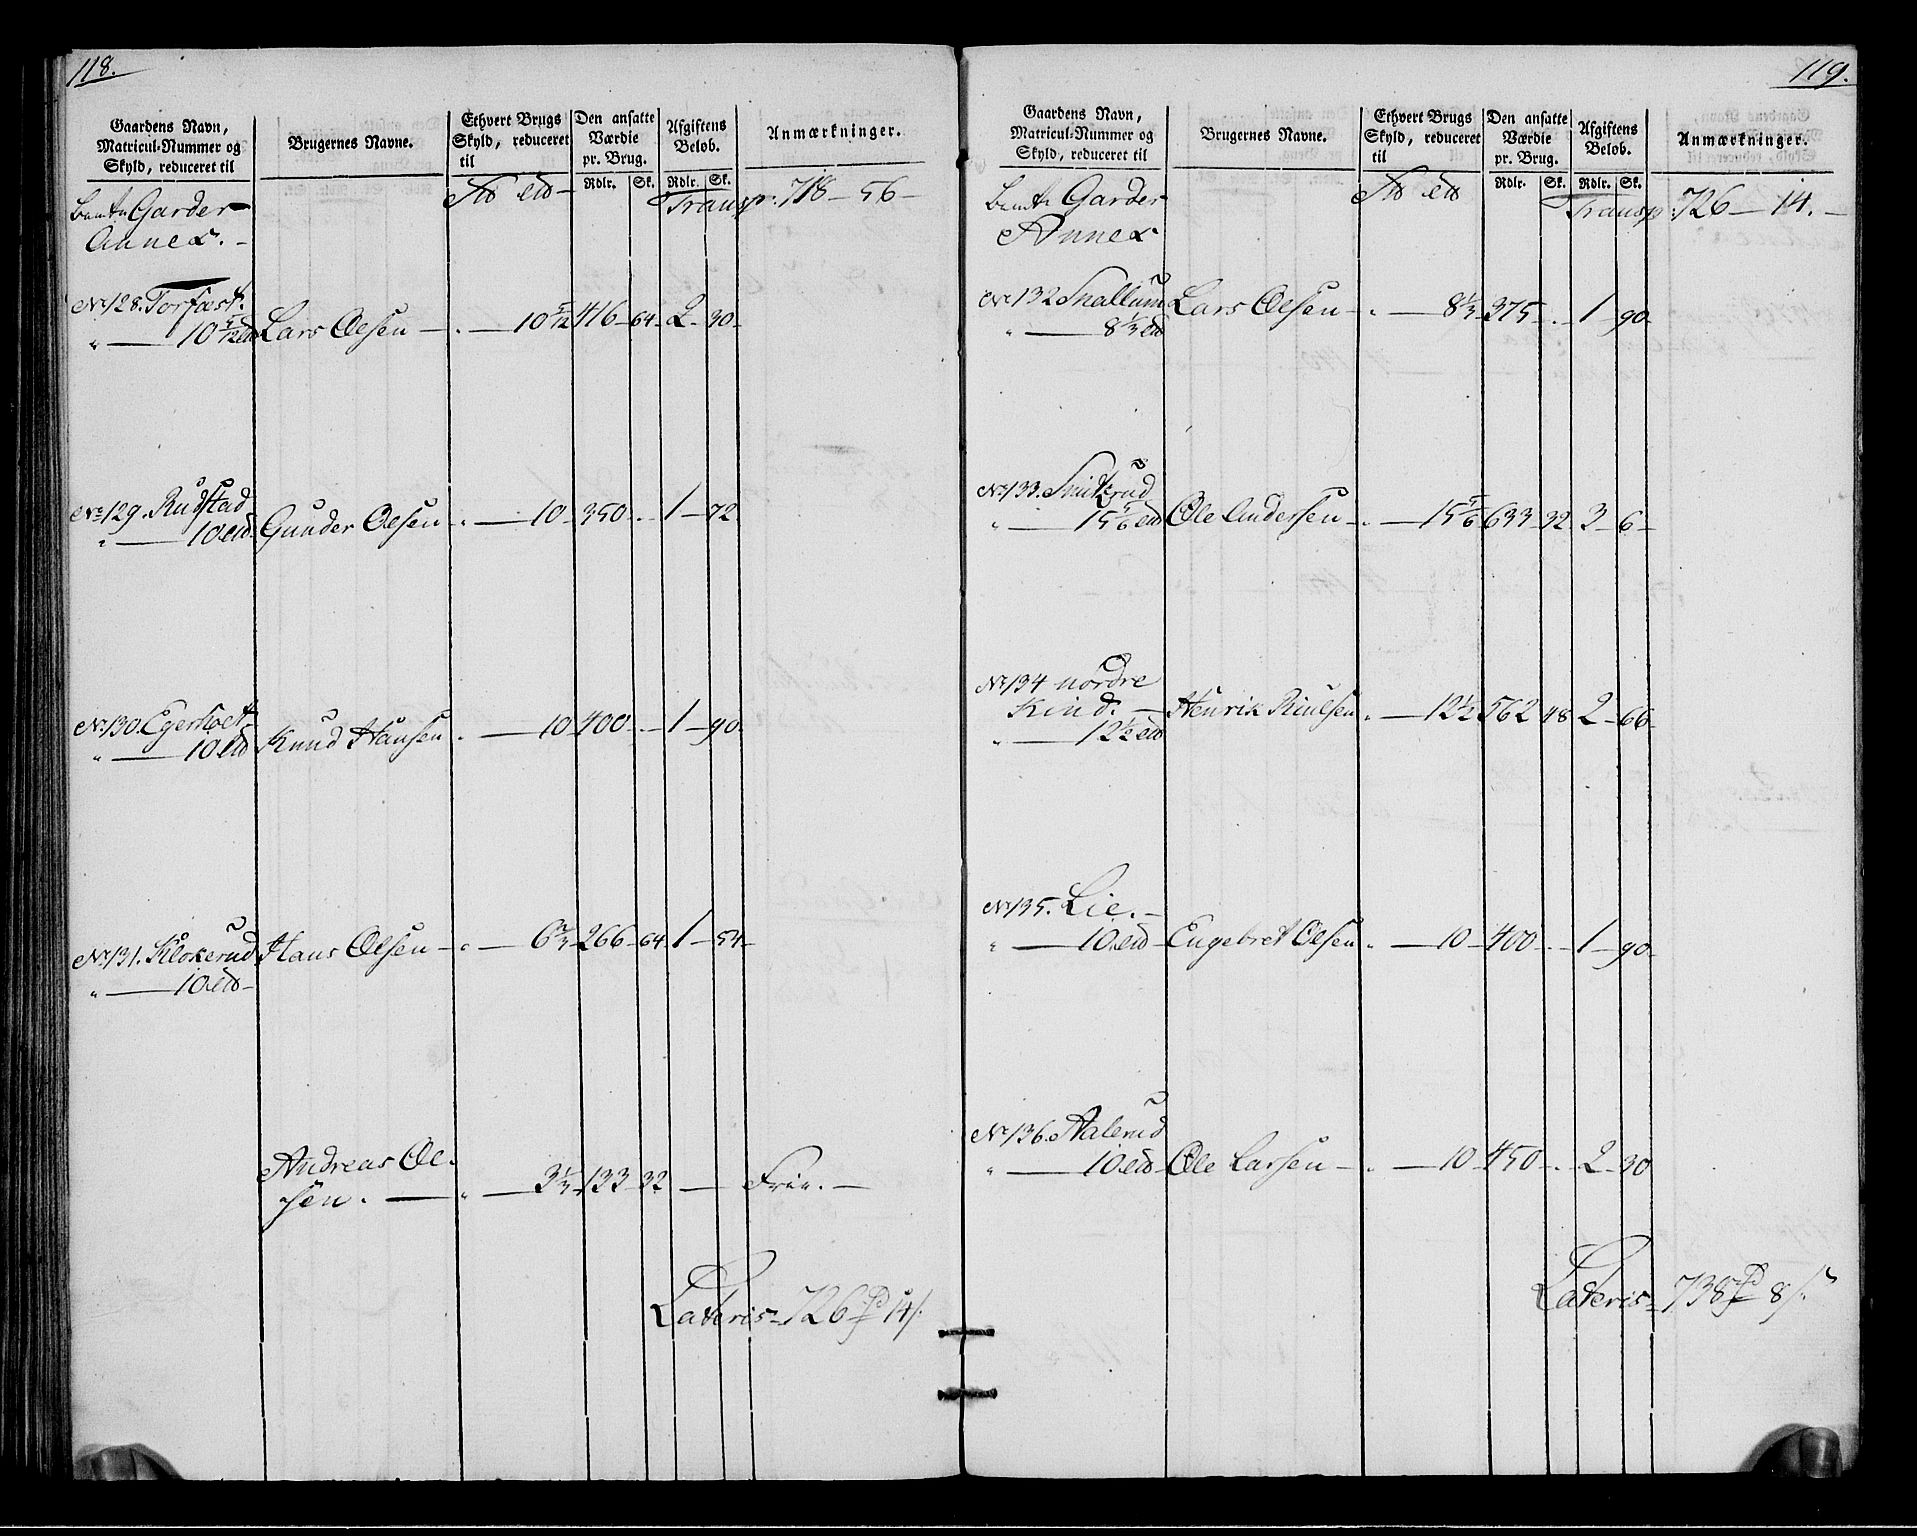 118.
Gaardens Navn, Matricul-Nummer og Skyld, reduceret til
Brugernes Navne.
Ethvert Brugs Skyld, reduceret til
Den ansatte Værdie pr. Brug.
Afgiftens Beløb.
Anmærkninger.
Rdlr. Sk. Rdlr. Sk.
Garder
Annex. –
Transp: 718 – 56 –
No 128. Torfæst.
" — 10 5/12 Lars Olsen – " — 10 5/12 416 – 64 – 2 – 30 –
No 129. Rudstad
" — 10 Gunder Olsen – " — 10 – 350 – . – 1 – 72
No 130. Egerholt
" — 10 Knud Hansen " — 10 – 400 – . – 1 – 90 –
No 131. Klokerud Hans Olsen – " — 6 2/3 – 266 – 64 – 1 – 54 –
" — 10
Andreas Ol-
sen. — " — 3 1/3 – 133 – 32 — Frie. —
Lateris – 726 14/.
119.
Gaardens Navn, Matricul-Nummer og Skyld, reduceret til
Brugernes Navne.
Ethvert Brugs Skyld, reduceret til
Den ansatte Værdie pr. Brug.
Afgiftens Beløb.
Anmærkninger.
Rdlr. Sk. Rdlr. Sk.
Garder
Annex
Transp: 726 – 14. –
No 132 Snallum Lars Olsen – " — 8 1/3 – 375 – . – 1 – 90 –
" — 8 1/3
No 133. Snikrud
" — 15 5/6 Ole Andersen – " — 15 5/6 633 – 32 3 – 6 –
No 134 nordre
Kind. – Henrik " — 12 1/2 562 – 48 – 2 – 66 –
" — 12 1/2
No 135. Lie. –
" — 10 Engebret Olsen " — 10 – 400 – . – 1 – 90 –
No 136. Aalerud
" — 10 Ole Larsen – " — 10 – 450 – . – 2 – 30
Lateris – 738 8/.